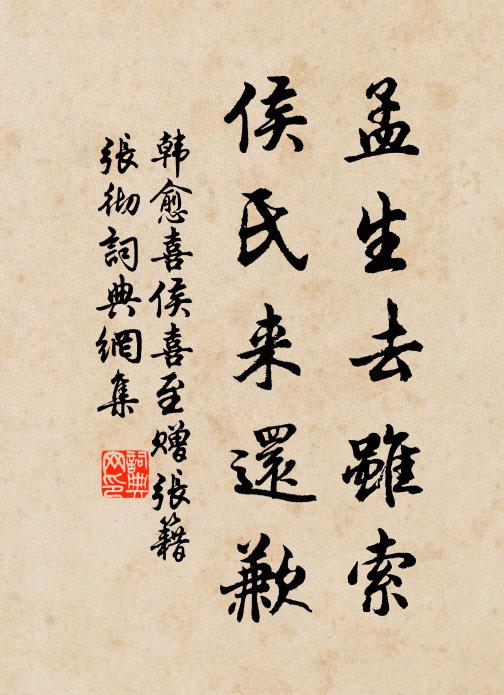 孟生去雖索
侯氏来還歉
韩愈喜侯喜至赠張籍
張彻詞典網集
詞典网印